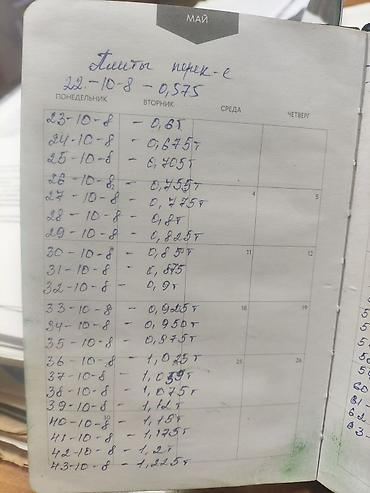 МАЙ
Плиты перек-е
22-10-8 - 0,575
ПОНЕДЕЛЬНИК ВТОРНИК СРЕДА ЧЕТВЕРГ
23-10-8 - 0,6т
24-10-8 - 0,675т
25-10-8 - 0,705т
26-10-8 - 0,755т
27-10-8 - 0,775т 4 5
28-10-8 - 0,8т
29-10-8 - 0,825т
30-10-8 - 0,85т 11 12
31-10-8 - 0,875
32-10-8 - 0,9т
33-10-8 - 0,925т 18 19
34-10-8 - 0,950т
35-10-8 - 0,975т
36-10-8 - 1,025т 25 26
37-10-8 -
38-10-8 - 1,075т
39-10-8 - 1,12т
40-10-8 - 1,15т
41-10-8 - 1,175т
42-10-8 - 1,2т
43-10-8 - 1,225т